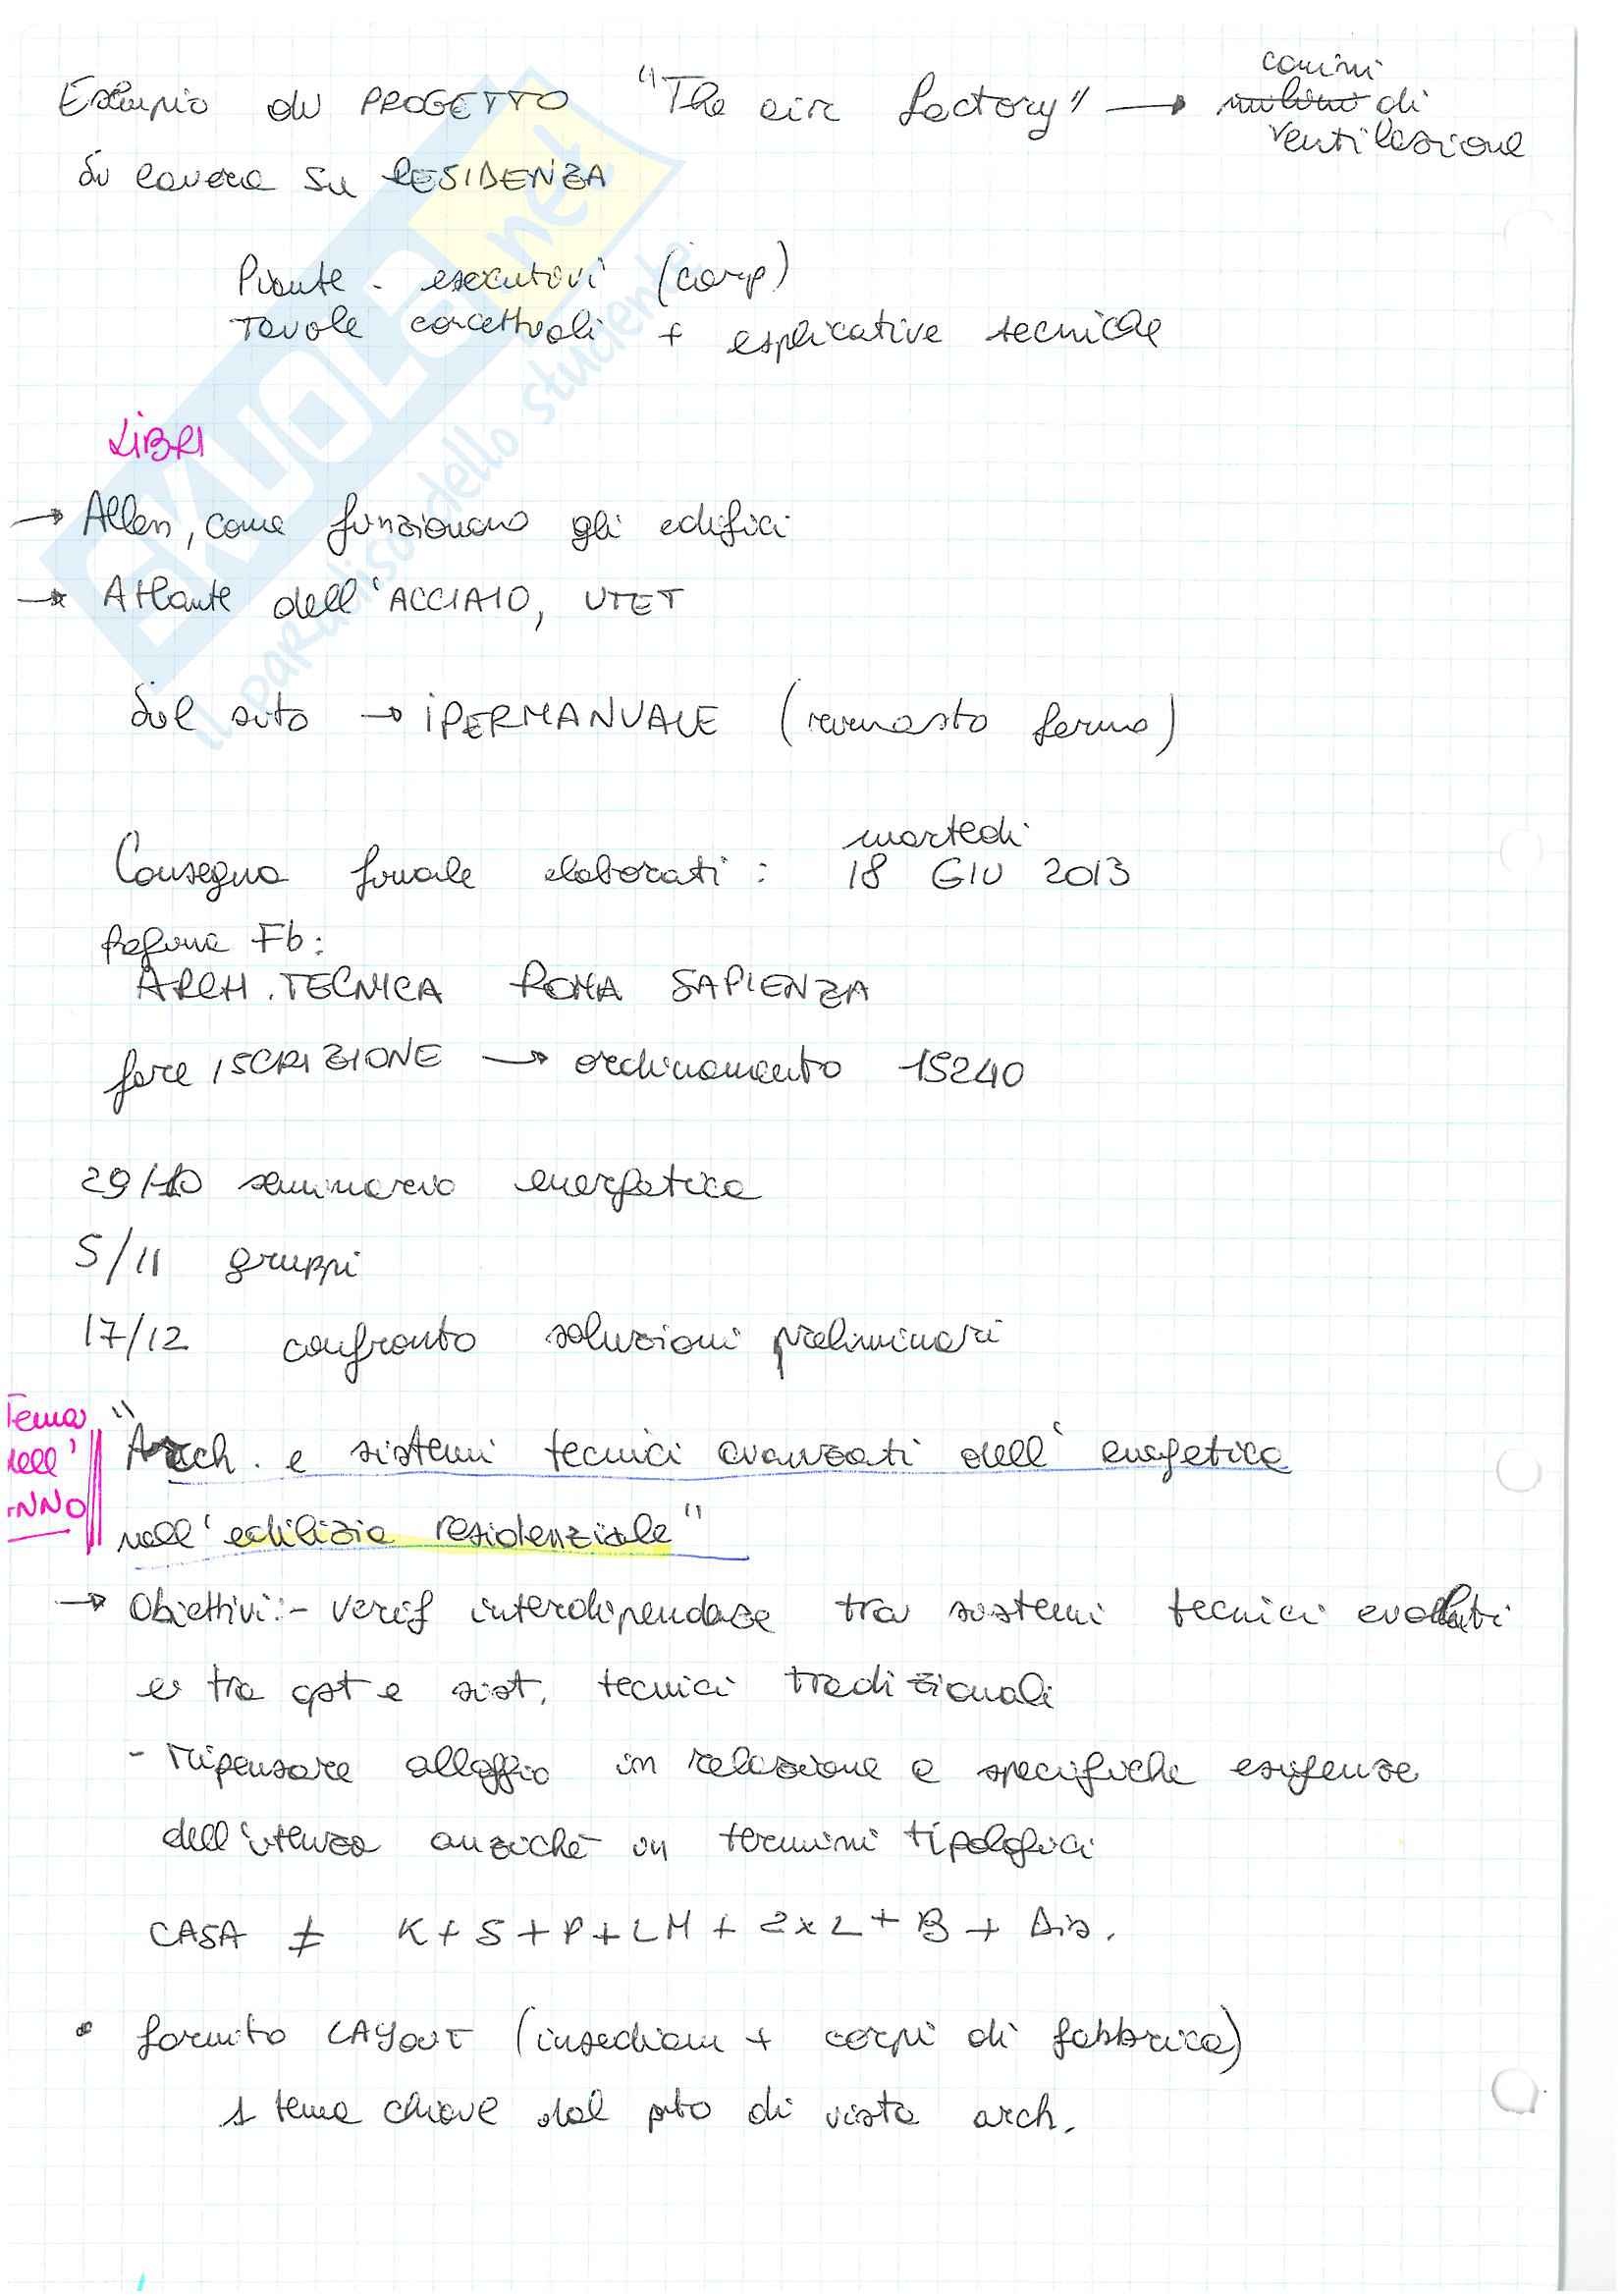 Esempio di PROGETTO "The air factory" → camini
di ventilazione
di laurea su RESIDENZA
Piante - esecutivi (comp)
Tavole concettuali + esplicative tecniche
LIBRI
→ Allen, come funzionano gli edifici
→ Atlante dell'ACCIAIO, UTET
Sul sito → IPERMANUALE (rimasto fermo)
martedì
Consegna finale elaborati: 18 GIU 2013
Pagina Fb:
ARCH. TECNICA ROMA SAPIENZA
fare ISCRIZIONE → ordinamento 15240
29/10 seminario energetica
5/11 gruppi
17/12 confronto soluzioni preliminari
Tema
dell'
ANNO
"Arch. e sistemi tecnici avanzati dell'energetica
nell'edilizia residenziale"
→ Obiettivi: - verif interdipendenze tra sistemi tecnici evoluti
e tra qst e sist. tecnici tradizionali
- ripensare alloggio in relazione a specifiche esigenze
dell'utenza anziché in termini tipologici
CASA ≠ K+S+P+LM+2xL+B+Dis.
• fornito LAYOUT (insediam + corpi di fabbrica)
1 tema chiave dal pto di vista arch.
SKUOLA.net
il paradiso dello studente